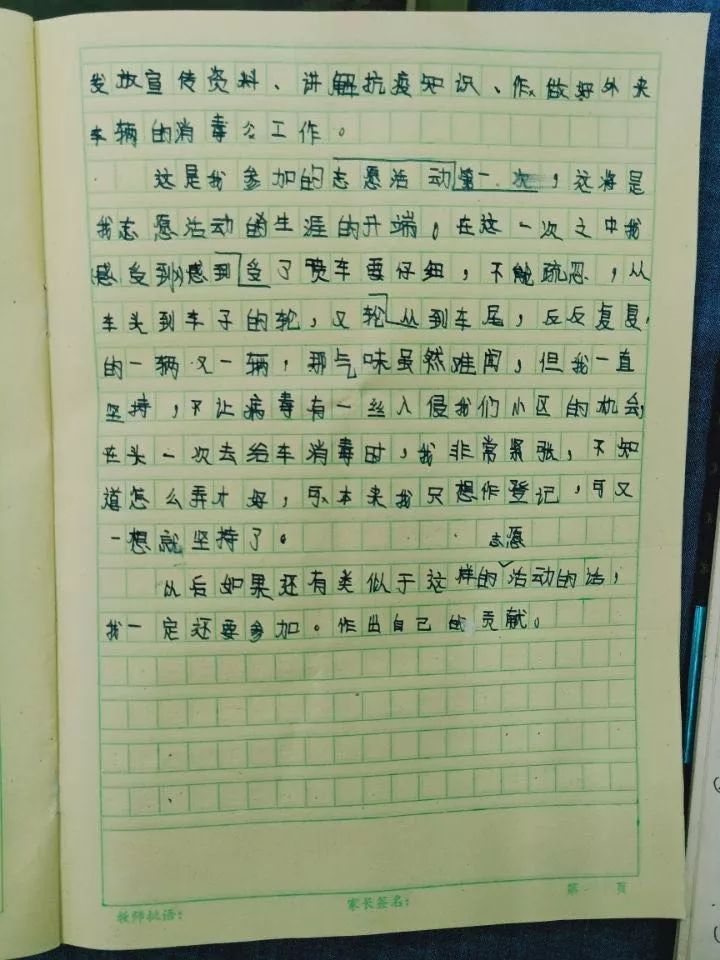 发放宣传资料、讲解抗疫知识、作做好外来
车辆的消毒公工作。
这是我参加的志愿活动第一次，这将是
我志愿活动的生涯的开端。在这一次之中我
感受到感到受了喷车要仔细，不能疏忽，从
车头到车子的轮，又轮从到车尾，反反复复
的一辆又一辆，那气味虽然难闻，但我一直
坚持，不让病毒有一丝入侵我们小区的机会，
在头一次去给车消毒时，我非常紧张，不知
道怎么弄才好，本来我只想作登记，可又
一想就坚持了。
志愿
从后如果还有类似于这样的活动的话，
我一定还要参加。作出自己的贡献。
教师批语：
家长签名：
第 页